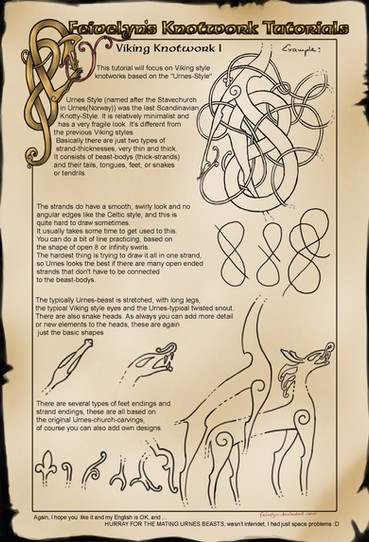 Feivelyn's Knotwork Tutorials
Viking Knotwork I
Example:
This tutorial will focus on Viking style
knotworks based on the "Urnes-Style"
Urnes Style (named after the Stavechurch
in Urnes(Norway)) was the last Scandinavian
Knotty-Style. It is relatively minimalist and
has a very fragile look. It's different from
the previous Viking styles.
Basically there are just two types of
strand-thicknesses, very thin and thick.
It consists of beast-bodys (thick-strands)
and their tails, tongues, feet, or snakes
or tendrils.
The strands do have a smooth, swirly look and no
angular edges like the Celtic style, and this is
quite hard to draw sometimes.
It usually takes some time to get used to this.
You can do a bit of line practicing, based on
the shape of open 8 or infinity swirls.
The hardest thing is trying to draw it all in one strand,
so Urnes looks the best if there are many open ended
strands that don't have to be connected
to the beast-bodys.
The typically Urnes-beast is stretched, with long legs,
the typical Viking style eyes and the Urnes-typical twisted snout.
There are also snake heads. As always you can add more detail
or new elements to the heads, these are again
just the basic shapes
There are several types of feet endings and
strand endings, these are all based on
the original Urnes-church-carvings,
of course you can also add own designs.
feivelyn.deviantart.com
Again, I hope you like it and my English is OK, and ...
HURRAY FOR THE MATING URNES BEASTS, wasn't intendet, I had just space problems :D